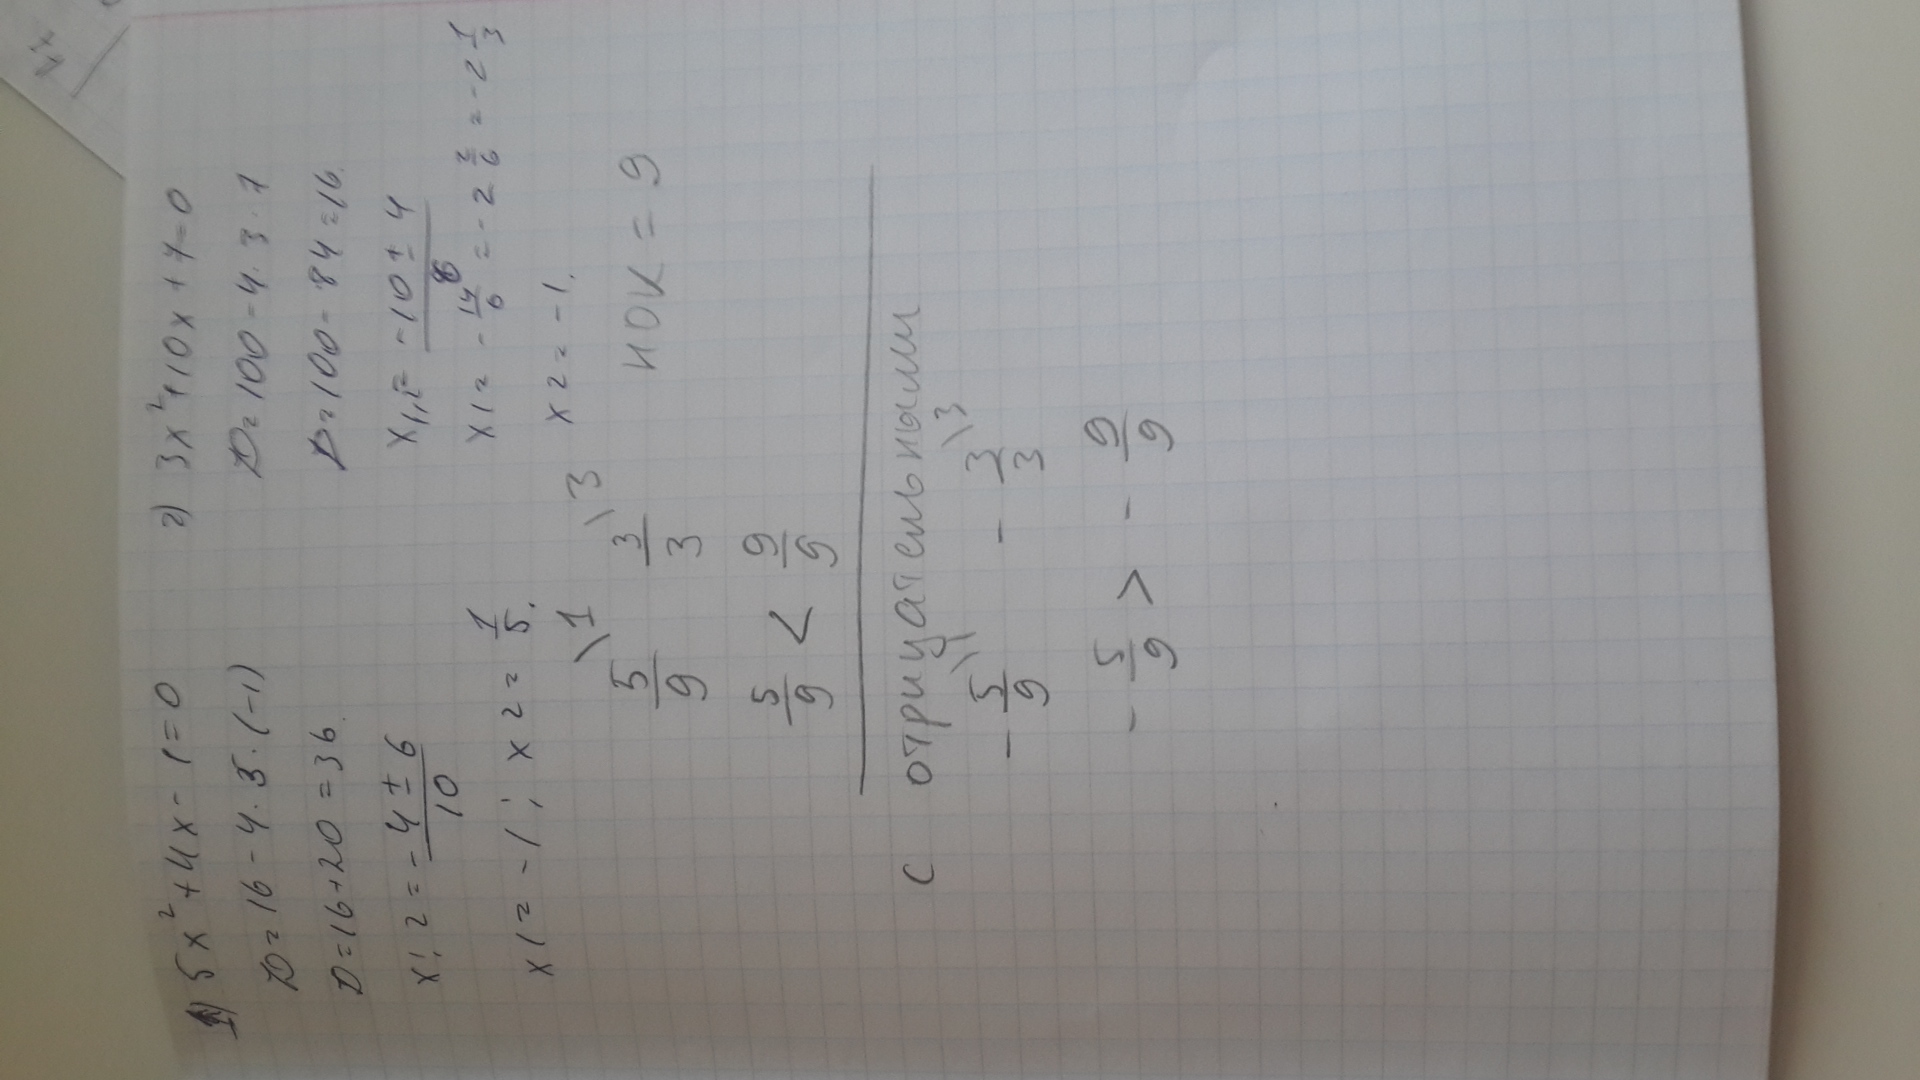 1) 5x²+4x-1=0
D=16-4·5·(-1)
D=16+20=36
x1,2=-4±6/10
x1=-1; x2=1/5.
2) 3x²+10x+7=0
D=100-4·3·7
D=100-84=16.
x1,2=-10±4/6
x1=-14/6=-2 2/6=-2 1/3
x2=-1.
5/9\1 3/3\3 НОК=9
5/9 < 9/9
с отрицательными
-5/9\1 -3/3\3
-5/9 > -9/9